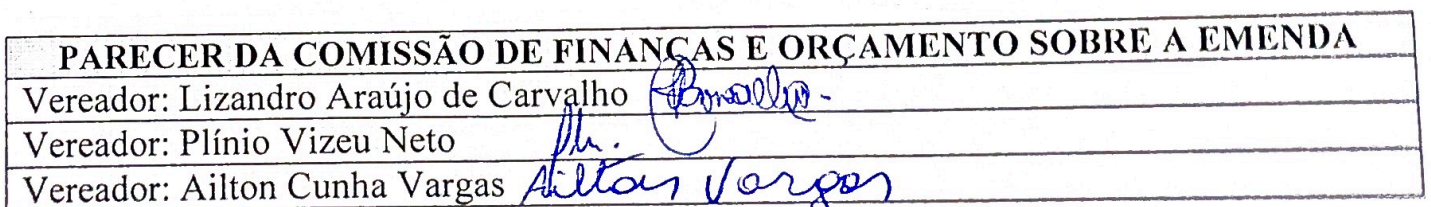 PARECER DA COMISSÃO DE FINANÇAS E ORÇAMENTO SOBRE A EMENDA
Vereador: Lizandro Araújo de Carvalho
Vereador: Plínio Vizeu Neto
Vereador: Ailton Cunha Vargas Ailton Vargas